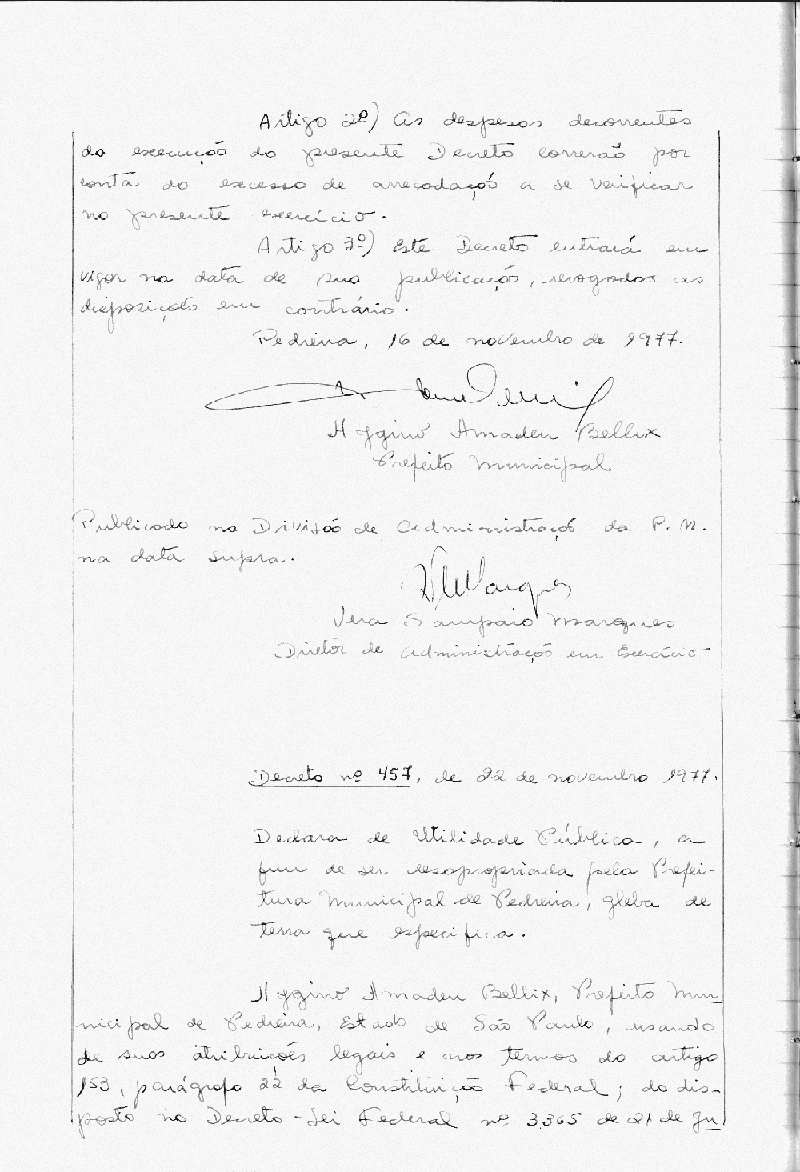 Artigo 2º) As despesas decorrentes
da execução do presente Decreto correrão por
conta do excesso de arrecadação a se verificar
no presente exercício.
Artigo 3º) Este Decreto entrará em
vigor na data de sua publicação, revogadas as
disposições em contrário.
Pedreira, 16 de novembro de 1977.
Hygino Amadeu Bellix
Prefeito Municipal
Publicado na Divisão de Administração da P. M.
na data supra.
Vera Sampaio Marques
Diretor de Administração em Exercício
Decreto nº 457, de 22 de novembro 1977.
Declara de Utilidade Pública, a
fim de ser desapropriada pela Prefei-
tura Municipal de Pedreira, gleba de
terra que especifica.
Hygino Amadeu Bellix, Prefeito Mun
nicipal de Pedreira, Estado de São Paulo, usando
de suas atribuições legais e nos termos do artigo
153, parágrafo 22 da Constituição Federal; do dis-
posto no Decreto-Lei Federal nº 3.365 de 21 de Ju